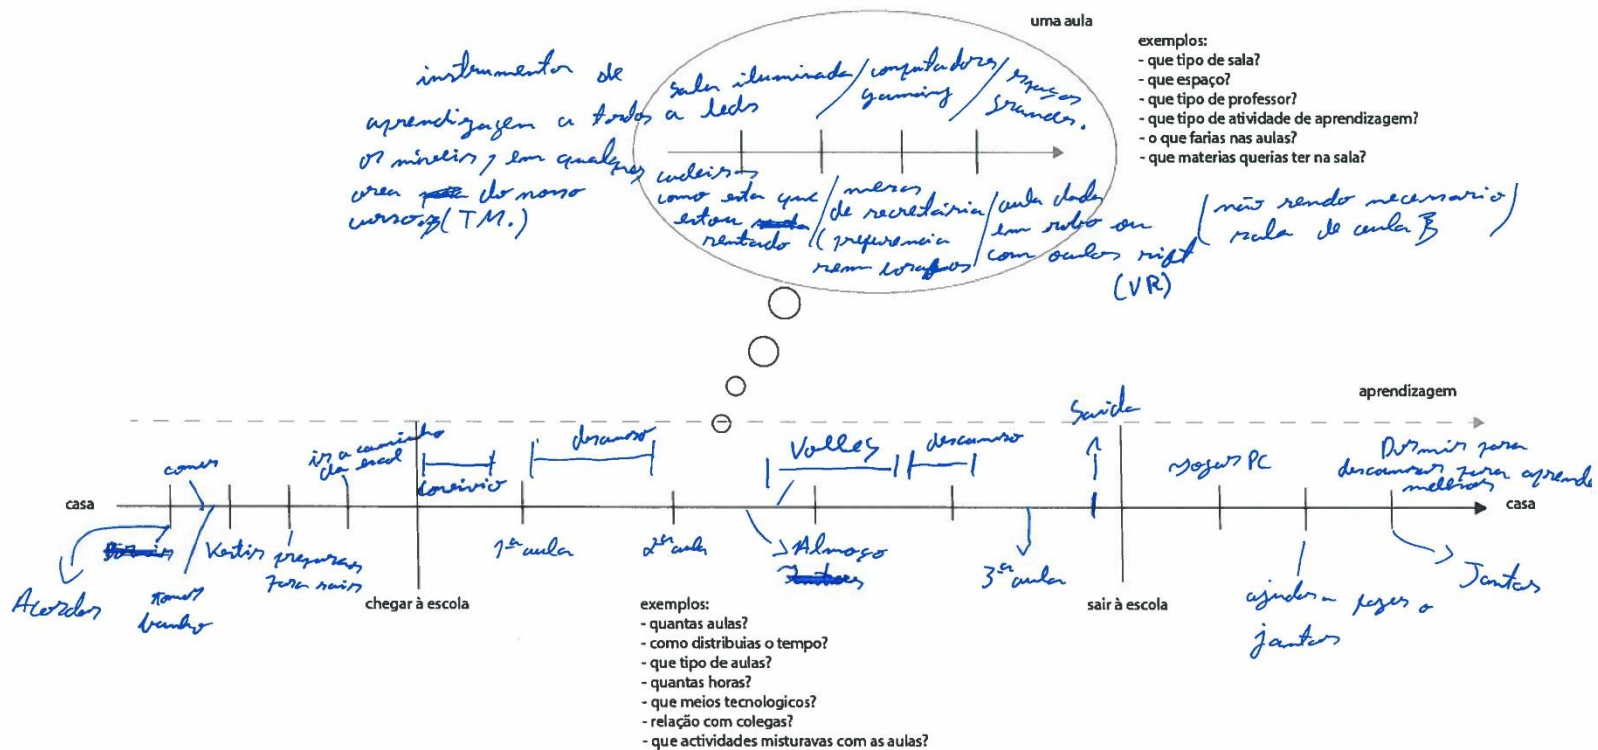 uma aula
exemplos:
- que tipo de sala?
- que espaço?
- que tipo de professor?
- que tipo de atividade de aprendizagem?
- o que farias nas aulas?
- que materias querias ter na sala?
instrumentos de
aprendizagem a todos
os niveis, em qualquer
area do nosso
curso (TM.)
sala iluminada / computadores / espaços
a leds gaming grandes.
cadeiras
como esta que / mesas / aula dada
estou de secretária em robo ou
sentado (preferencia com oculos rift
sem (VR)
(não sendo necessario)
sala de aula
aprendizagem
Saida
comer
ir a caminho
da escol
convivio
descanso
Volley
descanso
Jogar PC
Dormir para
descansar para aprende
melhor
casa
casa
Acordar
tomar
banho
Vestir
preparar
para sair
chegar à escola
1ª aula
2ª aula
Almoço
3ª aula
sair à escola
ajudar a fazer o
jantar
Jantar
exemplos:
- quantas aulas?
- como distribuias o tempo?
- que tipo de aulas?
- quantas horas?
- que meios tecnologicos?
- relação com colegas?
- que actividades misturavas com as aulas?